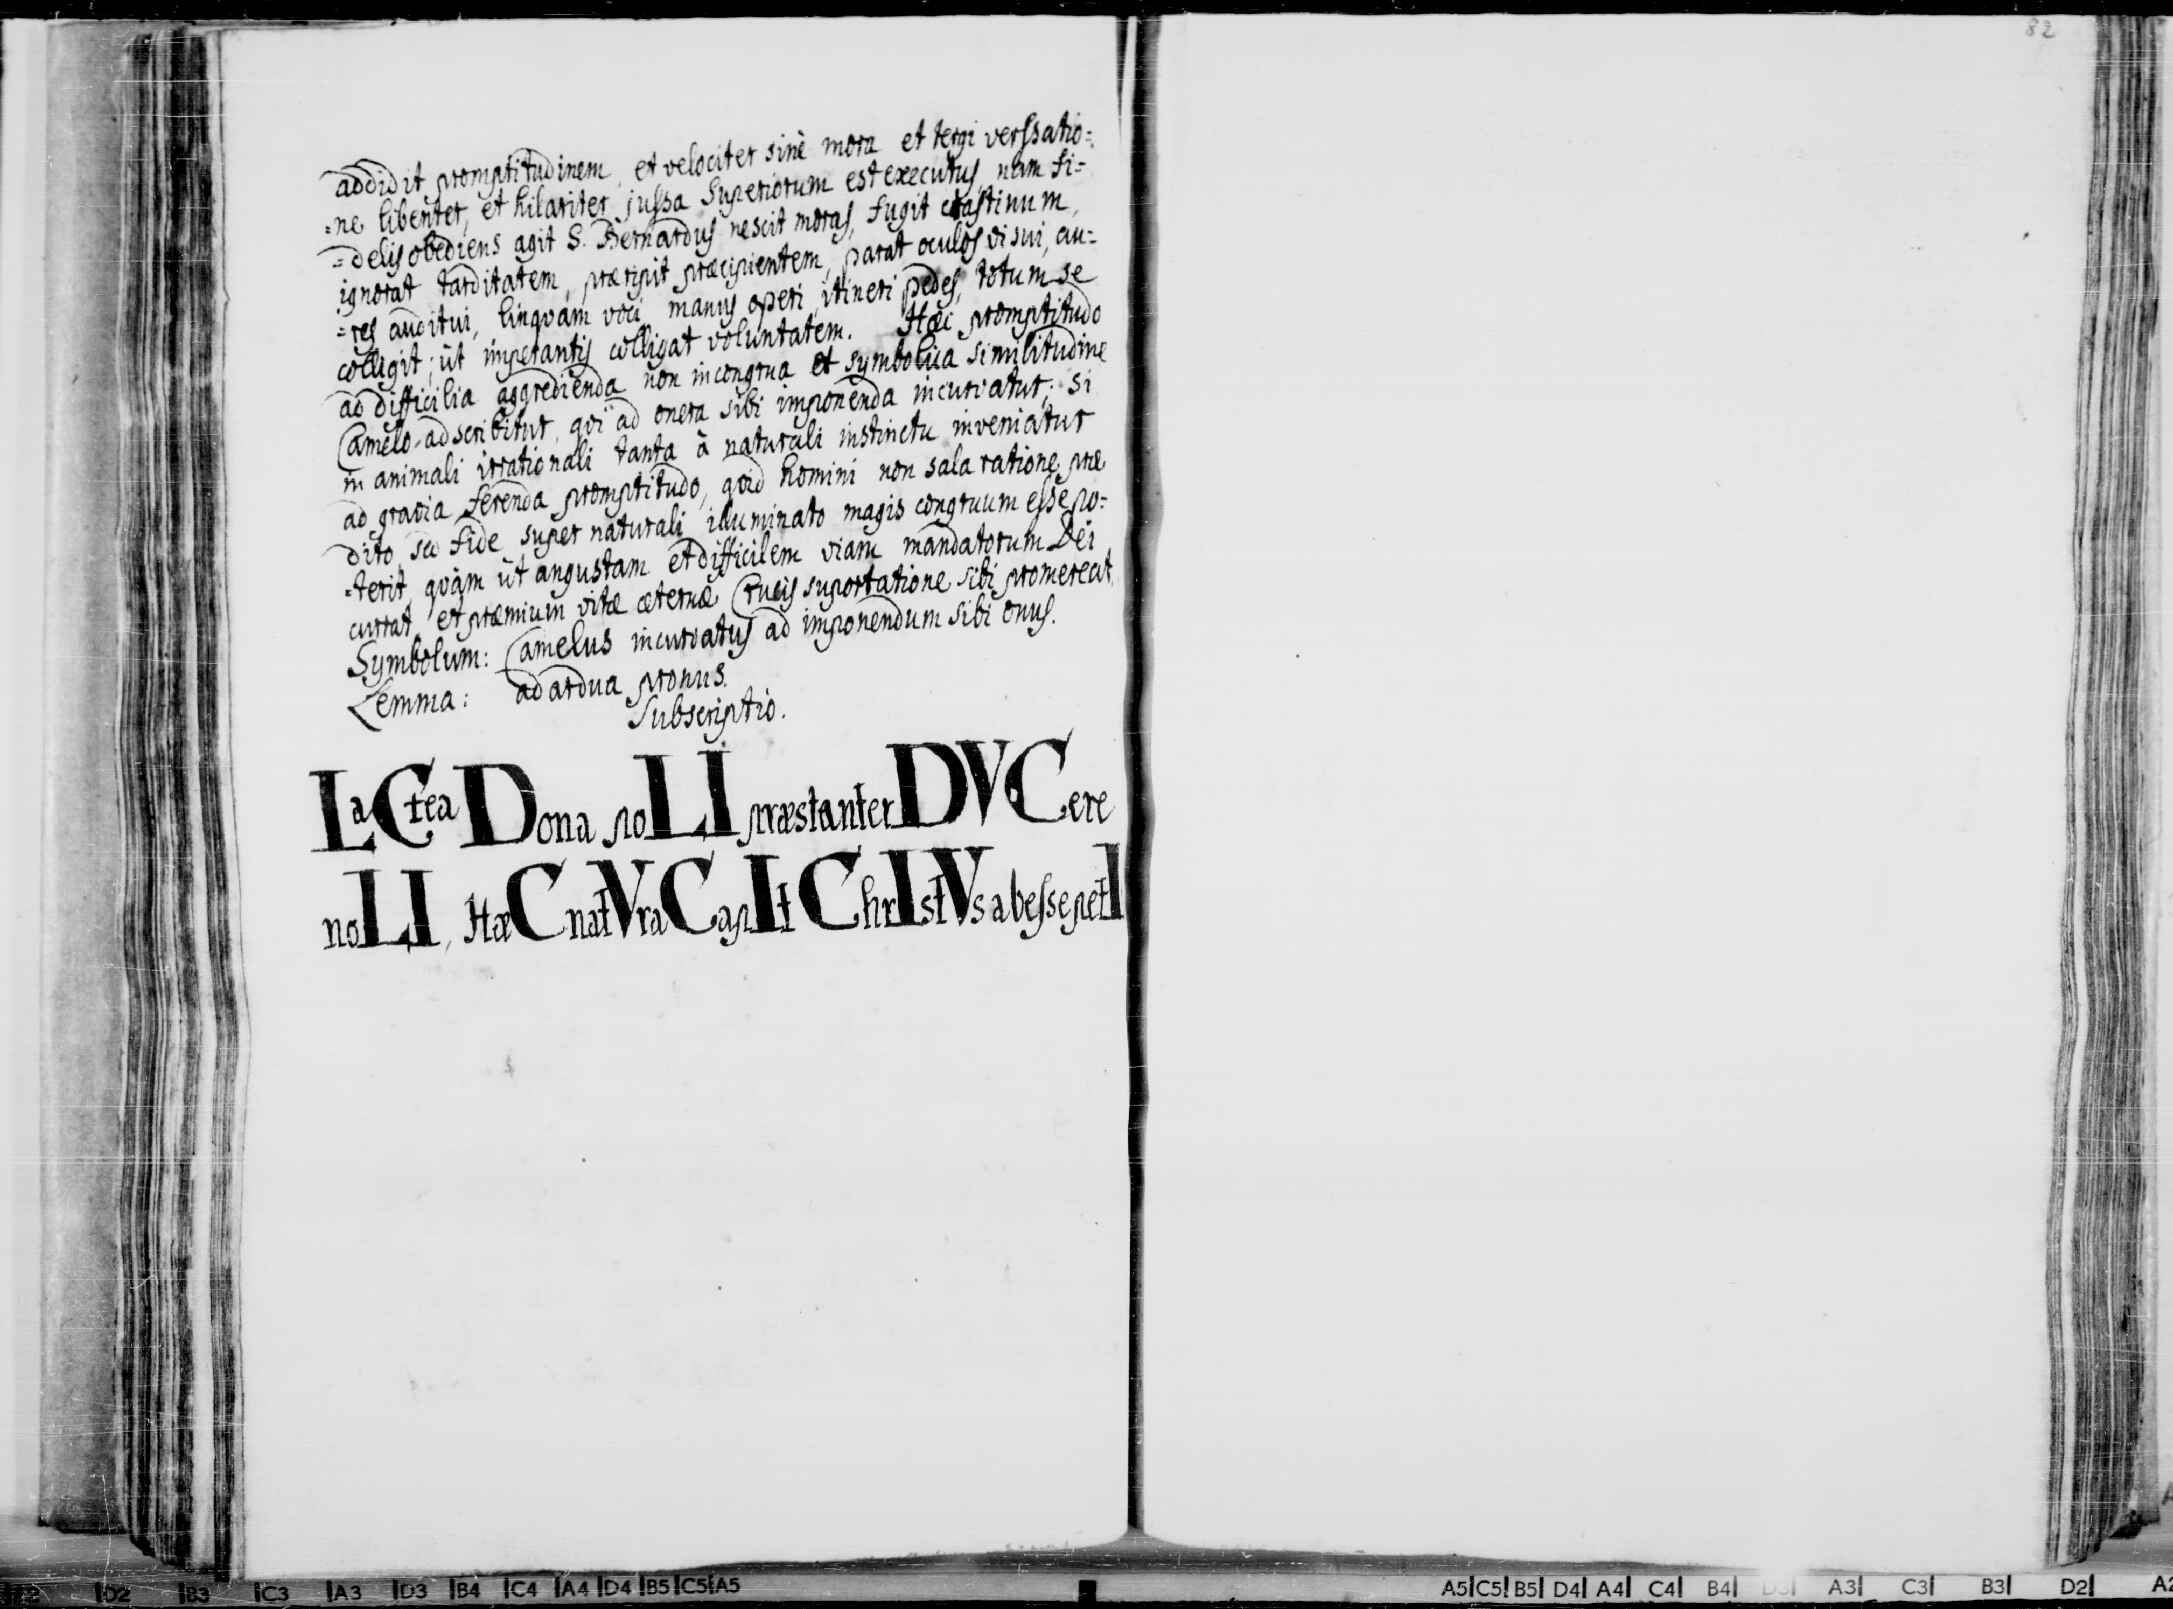 82
addidit promptitudinem, et velociter sinè mora et tergi verssatio=
=ne libenter, et hilariter jussa Superiorum est executus, nam fi=
=delis obediens agit S. Bernardus nescit moras, fugit crastinum,
ignorat tarditatem, præripit præcipientem, parat oculos visui, au=
=res auditui, linqvam voci manus operi, itineri pedes, totum se
colligit; ùt imperantis colligat voluntatem. Hæc promptitudo
ad difficilia aggredienda non incongrua et symbolica similitudine
Camelo adscribitur, qvi ad onera sibi imponenda incurvatur; si
in animali irrationali tanta à naturali instinctu inveniatur
ad gravia ferenda promptitudo, qvid homini non sala ratione præ
dito, sed fide super naturali illuminato magis congruum esse po=
=terit, qvàm ùt angustam et difficilem viam mandatorum Dei
currat, et præmium vitæ æternæ Crucis suportatione sibi promereat.
Symbolum: Camelus incurvatus ad imponendum sibi onus.
Lemma: ad ardua pronus.
Subscriptio.
LaCtea Dona poLI præstanter DVCere
noLI, HæC natVra CapIt ChrIstVs abesse petI
D2 B3 C3 A3 D3 B4 C4 A4 D4 B5 C5 A5
A5 C5 B5 D4 A4 C4 B4 D3 A3 C3 B3 D2 A2